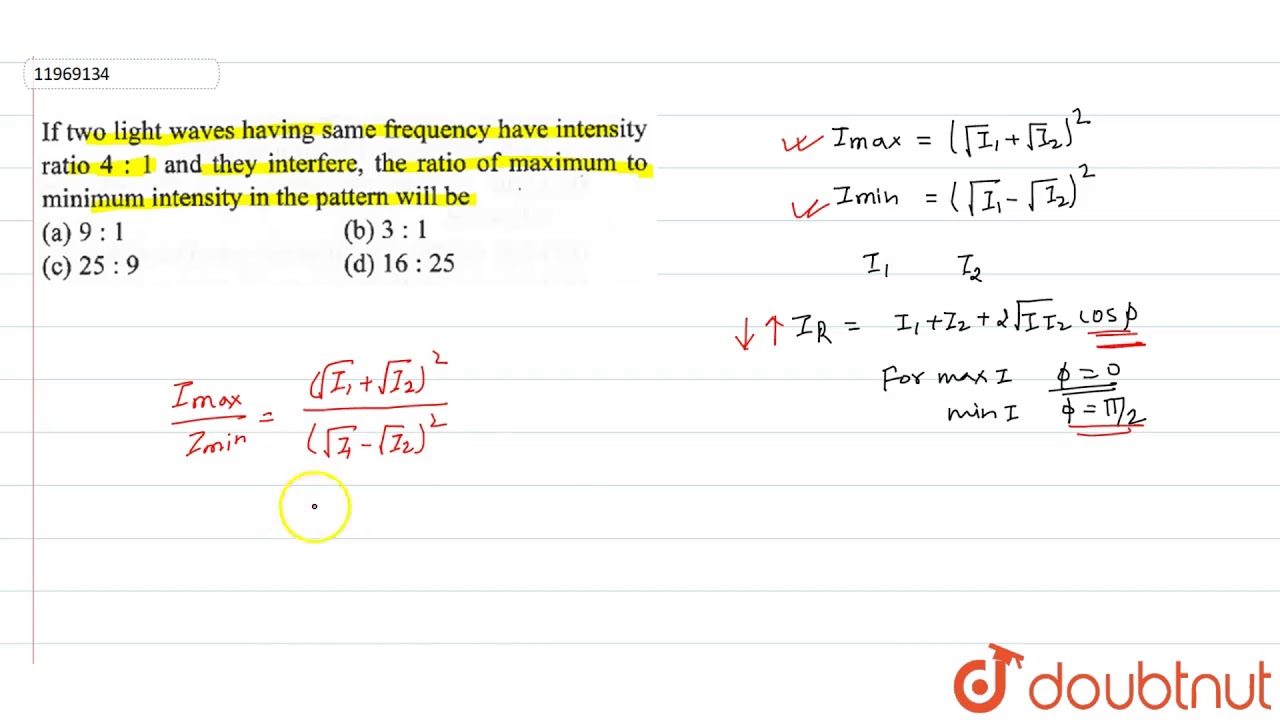 11969134
If two light waves having same frequency have intensity
ratio 4 : 1 and they interfere, the ratio of maximum to
minimum intensity in the pattern will be
(a) 9 : 1 (b) 3 : 1
(c) 25 : 9 (d) 16 : 25
Imax = (√I₁ + √I₂)²
Imin = (√I₁ - √I₂)²
I₁ I₂
↓ ↑ I_R = I₁ + I₂ + 2√I I₂ cos φ
For max I φ = 0
min I φ = π/2
Imax/Imin = (√I₁ + √I₂)²/(√I₁ - √I₂)²
doubtnut